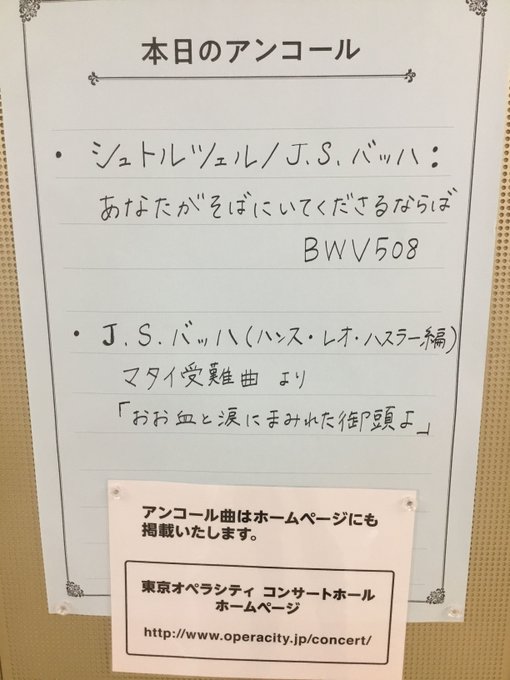 本日のアンコール
・ シュトルツェル / J.S.バッハ：
あなたがそばにいてくださるならば
BWV508
・ J.S.バッハ(ハンス・レオ・ハスラー編)
マタイ受難曲 より
「おお血と涙にまみれた御頭よ」
アンコール曲はホームページにも
掲載いたします。
東京オペラシティ コンサートホール
ホームページ
http://www.operacity.jp/concert/